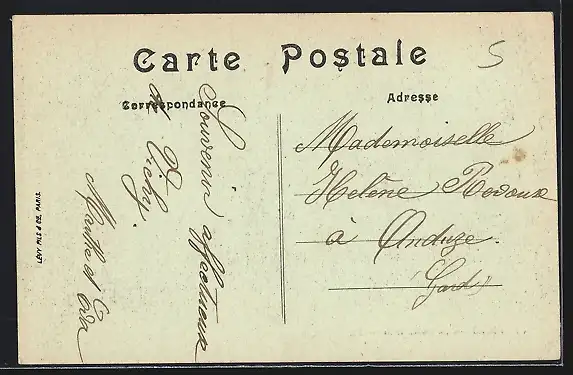 Carte Postale
Correspondance
Adresse
5
Souvenir affectueux
de Vichy.
Marthe et
Mademoiselle
Helène Revoux
à Anduze
(Gard)
LEVY FILS & CIE, PARIS